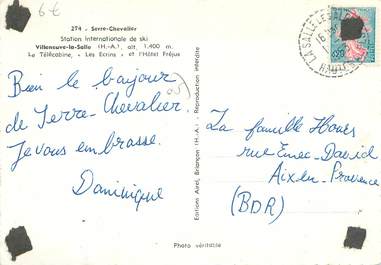 6€
274 - Serre-Chevalier
Station Internationale de ski
Villeneuve-la-Salle (H.-A.), alt. 1.400 m.
La Télécabine, - Les Ecrins - et l'Hôtel Fréjus
Bien le bonjour
de Serre-Chevalier.
Je vous embrasse.
Dominique
05
Editions Aval, Briançon (H.-A.) - Reproduction interdite
Photo véritable
LA SALLE LES
HAUTES
0,20
La famille
rue Emec-David
Aix-en-Provence
(BDR)